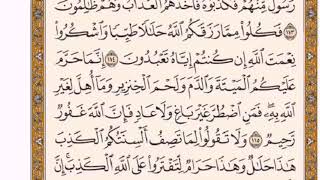 رَسُولٌ مِّنْهُمْ فَكَذَّبُوهُ فَأَخَذَهُمُ ٱلْعَذَابُ وَهُمْ ظَٰلِمُونَ
١١٣ فَكُلُوا۟ مِمَّا رَزَقَكُمُ ٱللَّهُ حَلَٰلًا طَيِّبًا وَٱشْكُرُوا۟
نِعْمَتَ ٱللَّهِ إِن كُنتُمْ إِيَّاهُ تَعْبُدُونَ ١١٤ إِنَّمَا حَرَّمَ
عَلَيْكُمُ ٱلْمَيْتَةَ وَٱلدَّمَ وَلَحْمَ ٱلْخِنزِيرِ وَمَآ أُهِلَّ لِغَيْرِ
ٱللَّهِ بِهِۦ فَمَنِ ٱضْطُرَّ غَيْرَ بَاغٍ وَلَا عَادٍ فَإِنَّ ٱللَّهَ غَفُورٌ
رَّحِيمٌ ١١٥ وَلَا تَقُولُوا۟ لِمَا تَصِفُ أَلْسِنَتُكُمُ ٱلْكَذِبَ
هَٰذَا حَلَٰلٌ وَهَٰذَا حَرَامٌ لِّتَفْتَرُوا۟ عَلَى ٱللَّهِ ٱلْكَذِبَ إِنَّ